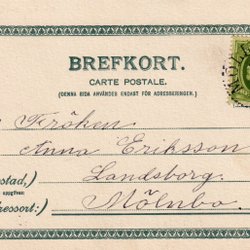 BREFKORT.
CARTE POSTALE.
(DENNA SIDA ANVÄNDES ENDAST FÖR ADRESSERINGEN.)
Fröken
Anna Eriksson
Landsborg.
ostad,)
uppgifves
Mölnbo.
dressort:)